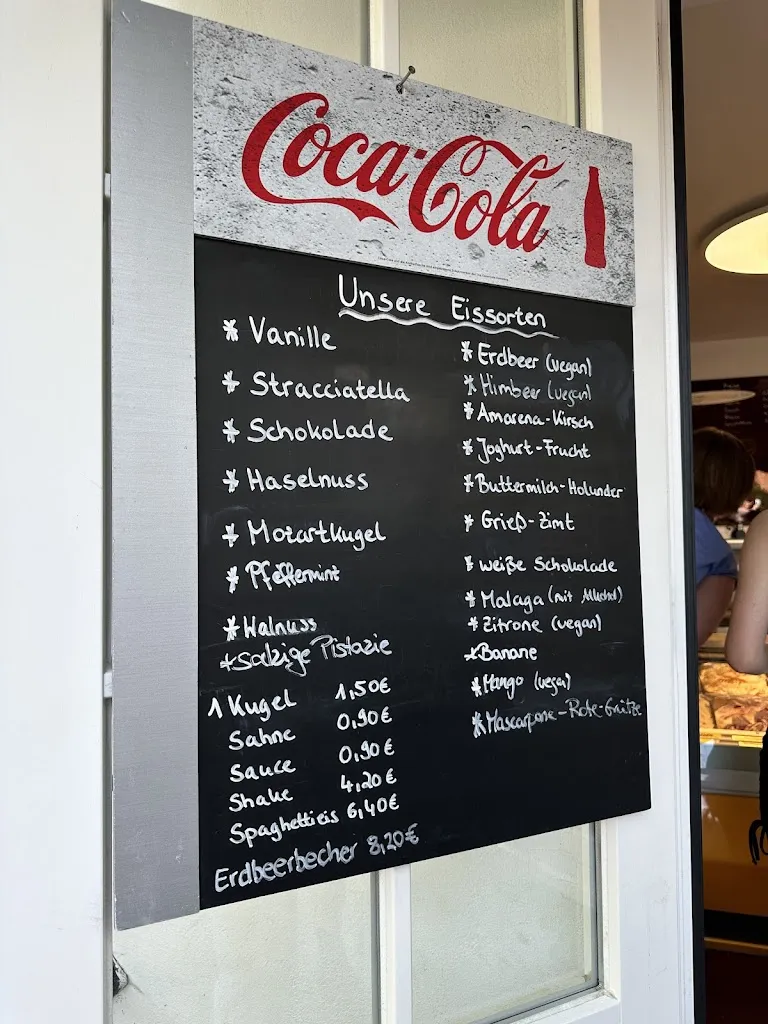 Coca-Cola
Unsere Eissorten
* Vanille
* Stracciatella
* Schokolade
* Haselnuss
* Mozartkugel
* Pfeffermint
* Walnuss
* salzige Pistazie
1 Kugel 1,50€
Sahne 0,90€
Sauce 0,90€
Shake 4,20€
Spaghettieis 6,40€
Erdbeerbecher 8,20€
* Erdbeer (vegan)
* Himbeer (vegan)
* Amarena-Kirsch
* Joghurt-Frucht
* Buttermilch-Holunder
* Grieß-Zimt
* weiße Schokolade
* Malaga (mit Alkohol)
* Zitrone (vegan)
* Banane
* Mango (vegan)
* Mascarpone-Rote-Grütze